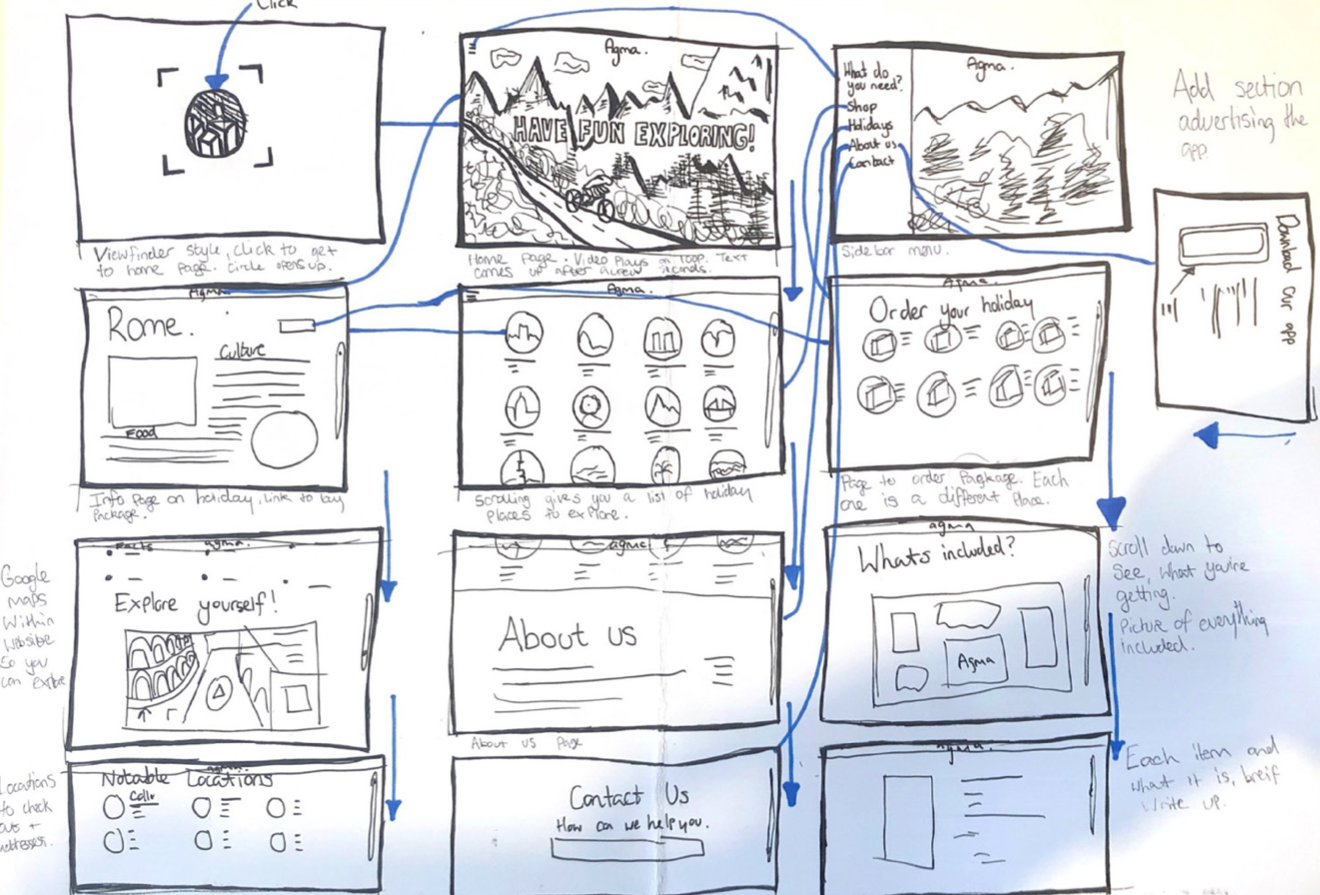 Click
Viewfinder style, click to get
to home page. Circle opens up.
Agma.
HAVE FUN EXPLORING!
Home Page. Video Plays on loop. Text
comes up after a few seconds.
Agma.
What do
you need?
Shop
Holidays
About us
Contact
Side bar menu.
Add section
advertising the
app.
Download our app
Agma
Rome.
Culture
Food
Info Page on holiday, link to buy
Package.
Agma.
Scrolling gives you a list of holiday
places to explore.
Agma.
Order your holiday
Page to order Pagkage. Each
one is a different Place.
Google
maps
Within
website
So you
can
Facts
agma.
Explore yourself!
agma
About us
About us Page
agma
Whats included?
Agma
Scroll down to
See, what you're
getting.
Picture of everything
included.
Locations
to check
out +
addresses.
agma.
Notable Locations
Contact Us
How can we help you.
agma.
Each item and
what it is, breif
Write up.